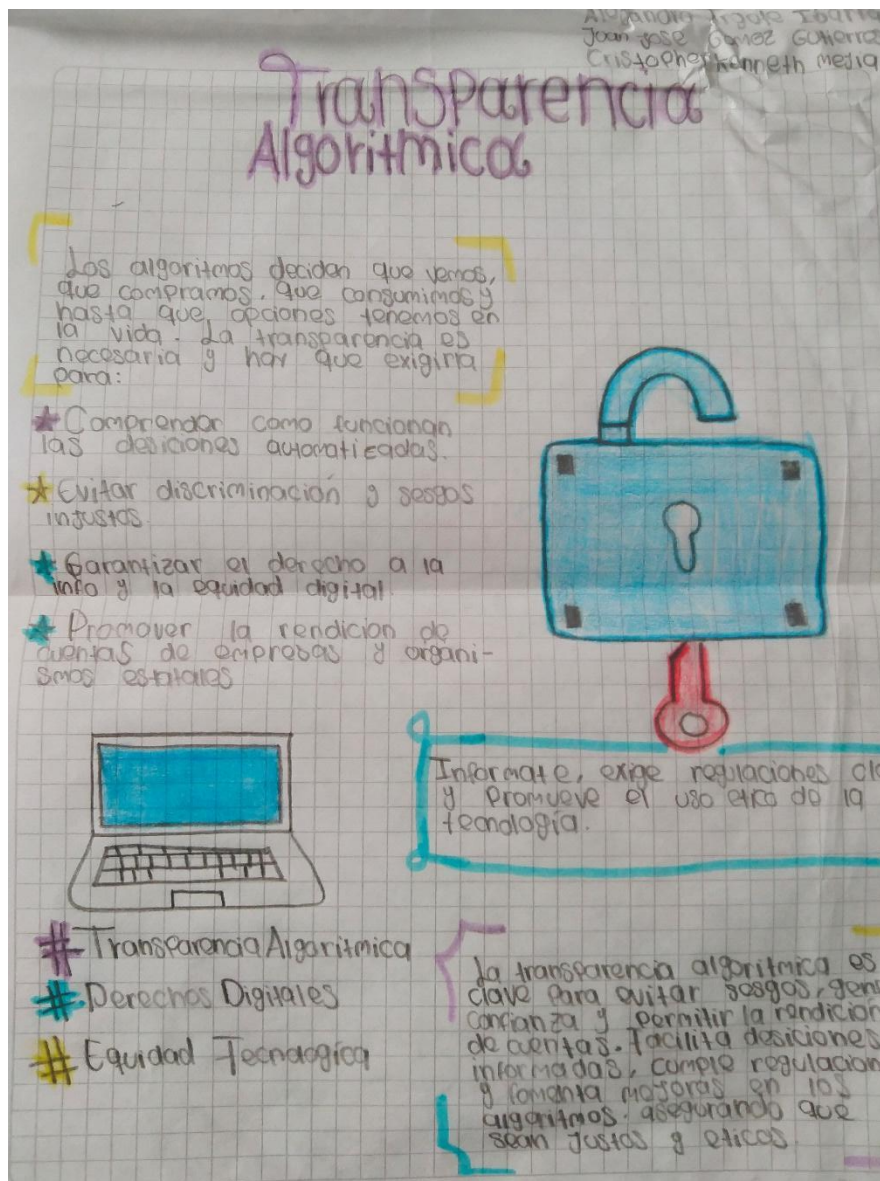 Juan Jose Gomez
Cristopher Kenneth
Transparencia
Algoritmica
Los algoritmos deciden que vemos,
que compramos. que consumimos y
hasta que opciones tenemos en
la vida. La transparencia es
necesaria y hay que exigirla
para:
Comprender como funcionan
las desiciones automatizadas.
Evitar discriminación y sesgos
injustos.
Garantizar el derecho a la
info y la equidad digital
Promover la rendición de
cuentas de empresas y organi-
smos estatales
Informate, exige regulaciones
y Promueve el uso etico de la
tecnología.
#TransparenciaAlgoritmica
#Derechos Digitales
#Equidad Tecnologica
La transparencia algoritmica es
clave Para evitar sesgos,
confianza y permitir la rendición
de cuentas. Facilita desiciones
informadas, cumple
y fomenta mejoras en los
algoritmos. asegurando que
sean Justos y eticos